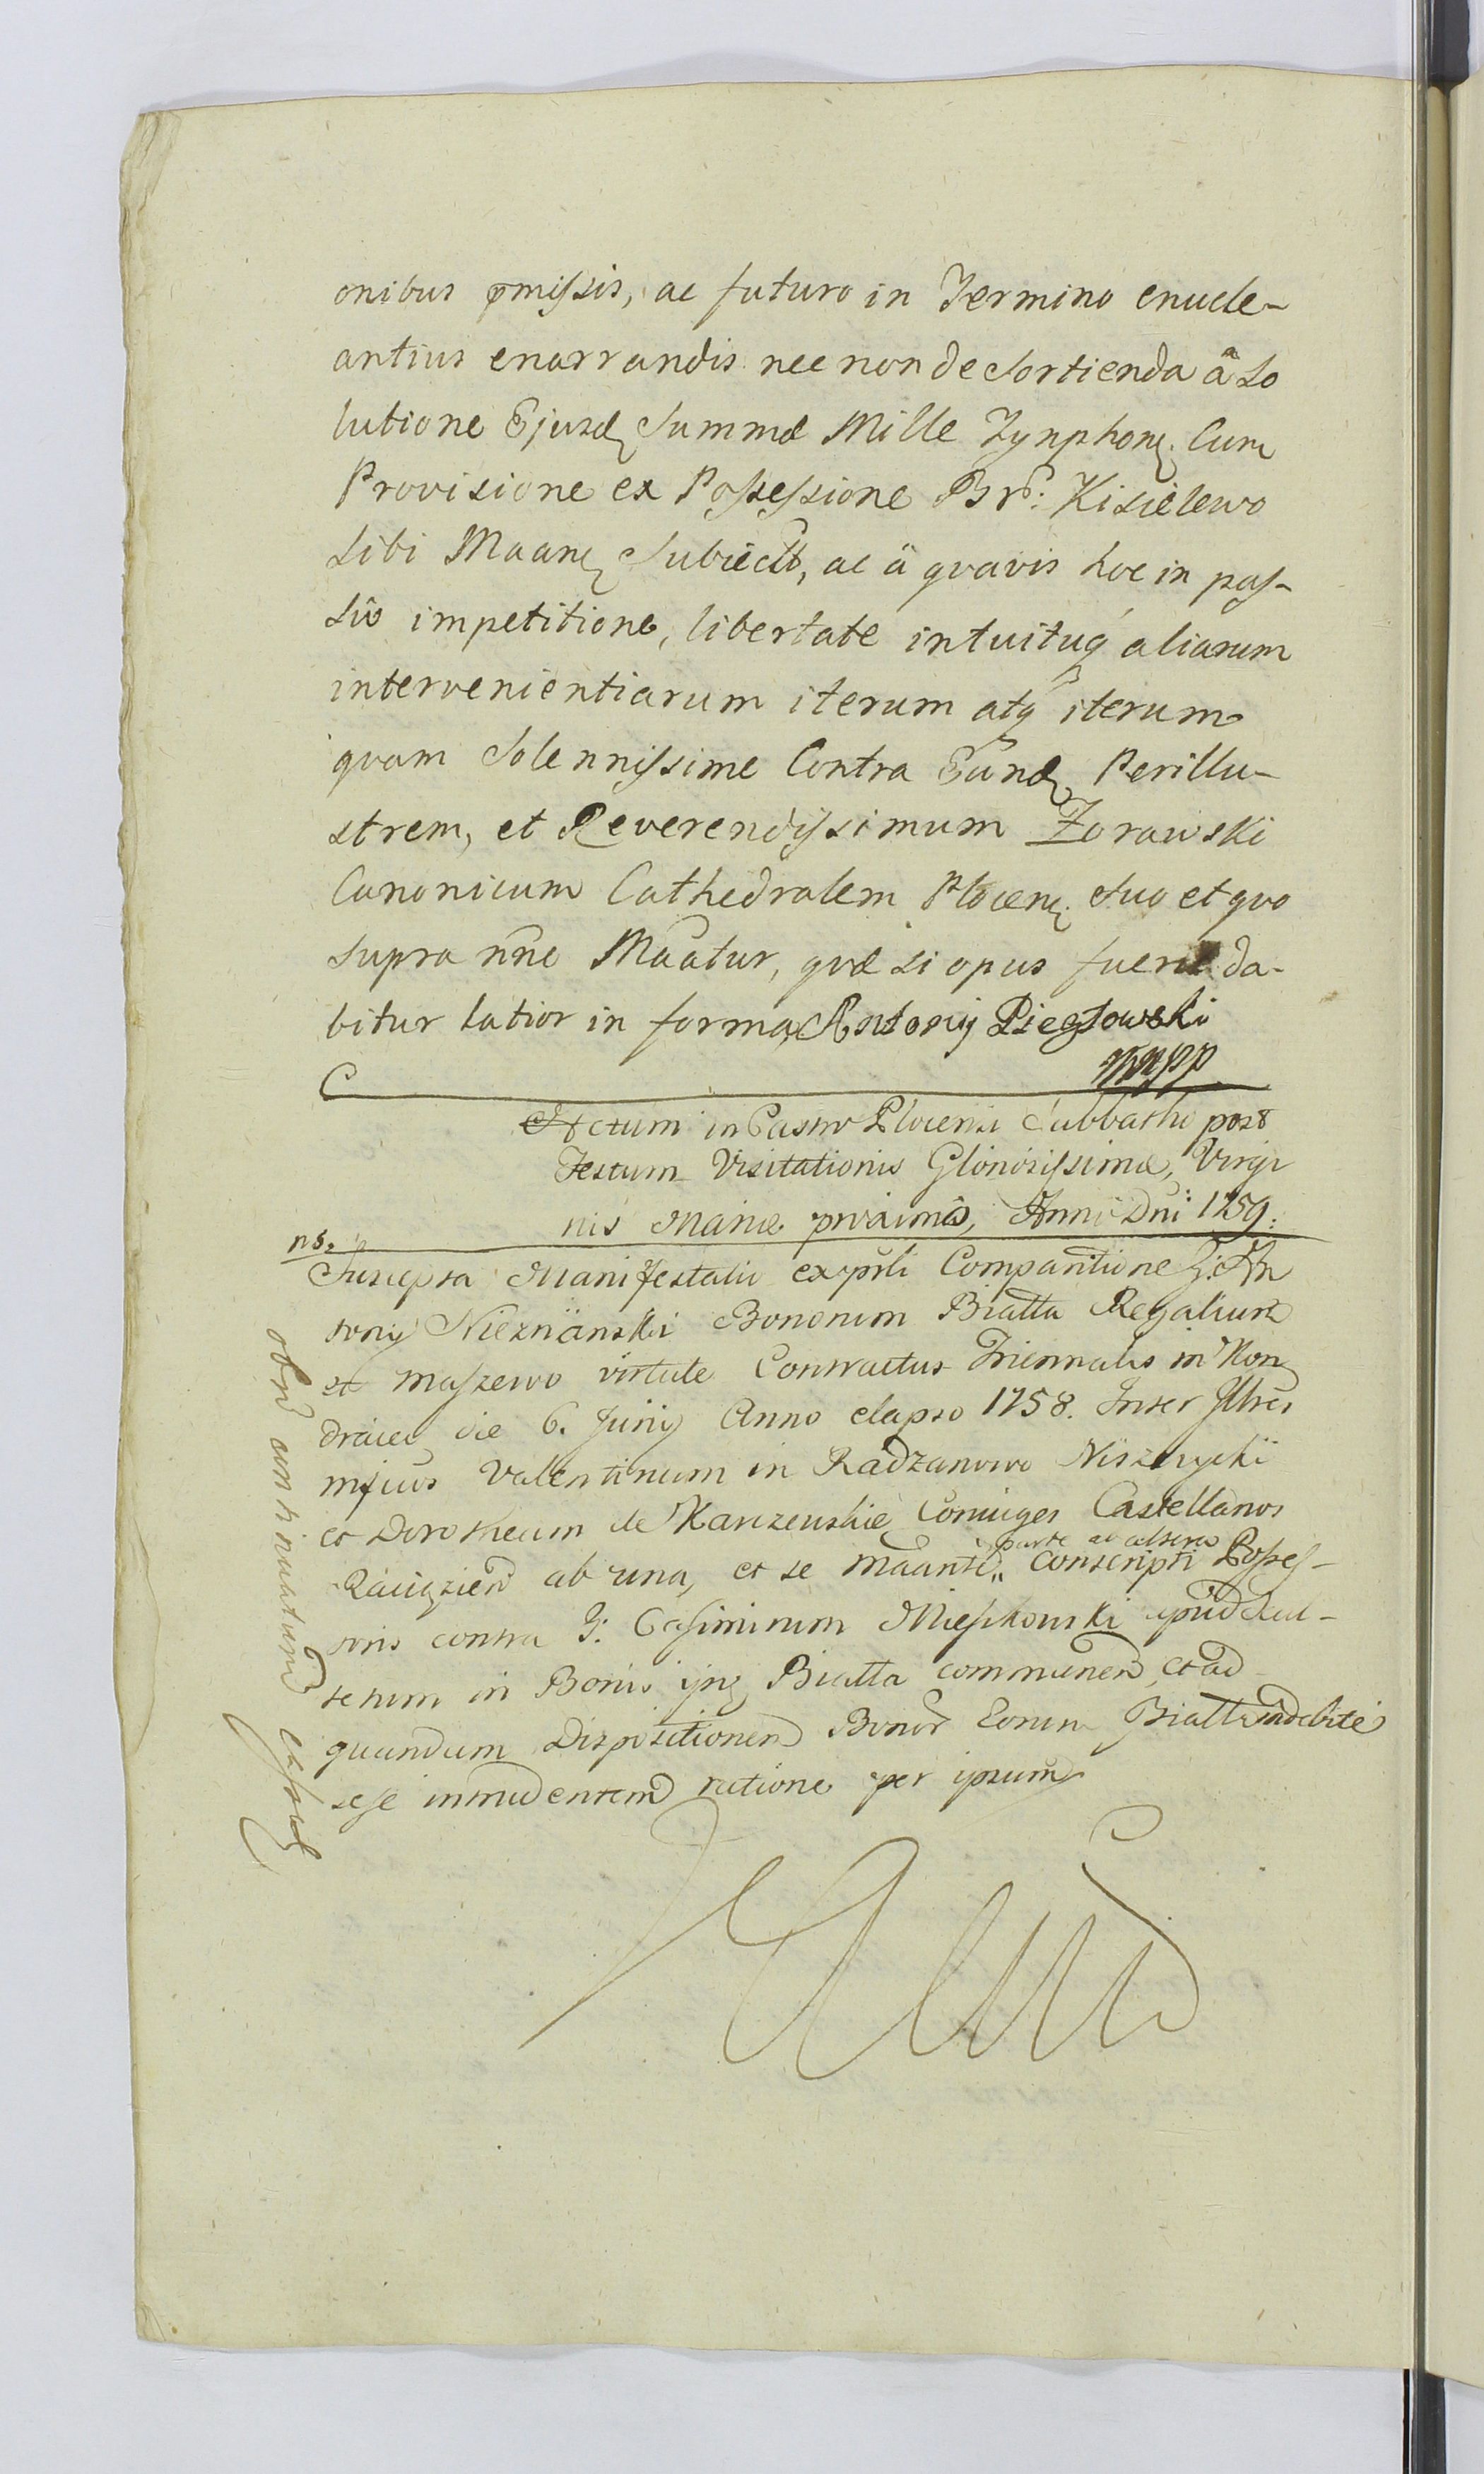 onibus pmissis, ac futuro in Termino enucle-
antius enarrandis nec non de Sortienda â So
lutione Ejusd Summæ Mille Tynphon. Cum
Provisione ex Possessione Br: Kisielewo
Sibi Maan Subiect, ac â qvavis hoc in pas-
sû impetitione, libertate intuituq aliarum
intervenientiarum iterum atq iterum
qvam Solennissime Contra Eund Perillu-
strem, et Reverendissimum Zorawski
Canonicum Cathedralem Plocen. Suo et qvo
supra nne Maatur, qvæ si opus fuerit da-
bitur latior in forma, Antonij Piegłowski
mpp
Actum in Castro Plocensi Sabbatho post
Festum Visitationis Gloriosissimæ, Virgi
nis Mariæ proximo, Anni Dni 1759.
ns.
Suscepta Manifestatio ex psli Comparitione G: An
tonij Nieznanski Bonorum Białła Regalium
et Maszewo virtute Contractus Triennalis in Kon
drajec die 6. Junij Anno elapso 1758. Inter Illres
mfcos Valentinum in Radzanowo Niszczycki
et Dorotheam de Karczewskie Coniuges Castellanos
parte ab altera
Raciązien ab una, et se Maanti,, conscripti Posses-
soris contra G: Casimirum Mieszkowski apud
in Bonis ijs Białła communem et ad
quandam Dispositionem Bonor Eorum Białła indebite
sese intrudentem ratione per ipsum
obn continuatum